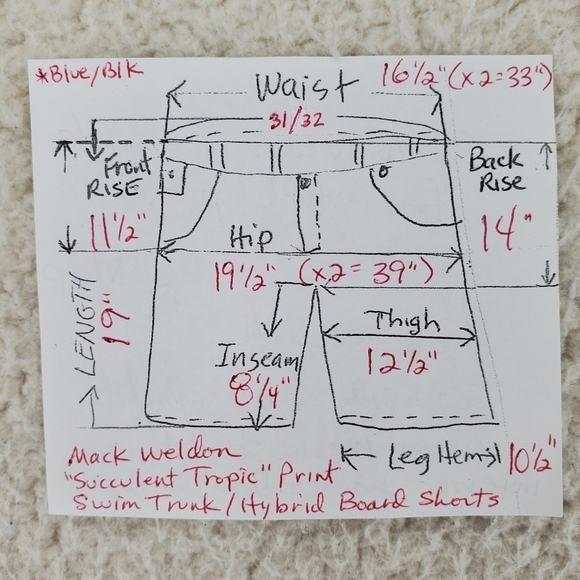 *Blue/Blk
Waist 16 1/2" (x2=33")
31/32
Front RISE
11 1/2"
Back Rise
14"
Hip
19 1/2" (x2=39")
LENGTH 19"
Inseam
8 1/4"
Thigh
12 1/2"
Leg Hem 10 1/2"
Mack Weldon
"Succulent Tropic" Print
Swim Trunk/Hybrid Board Shorts